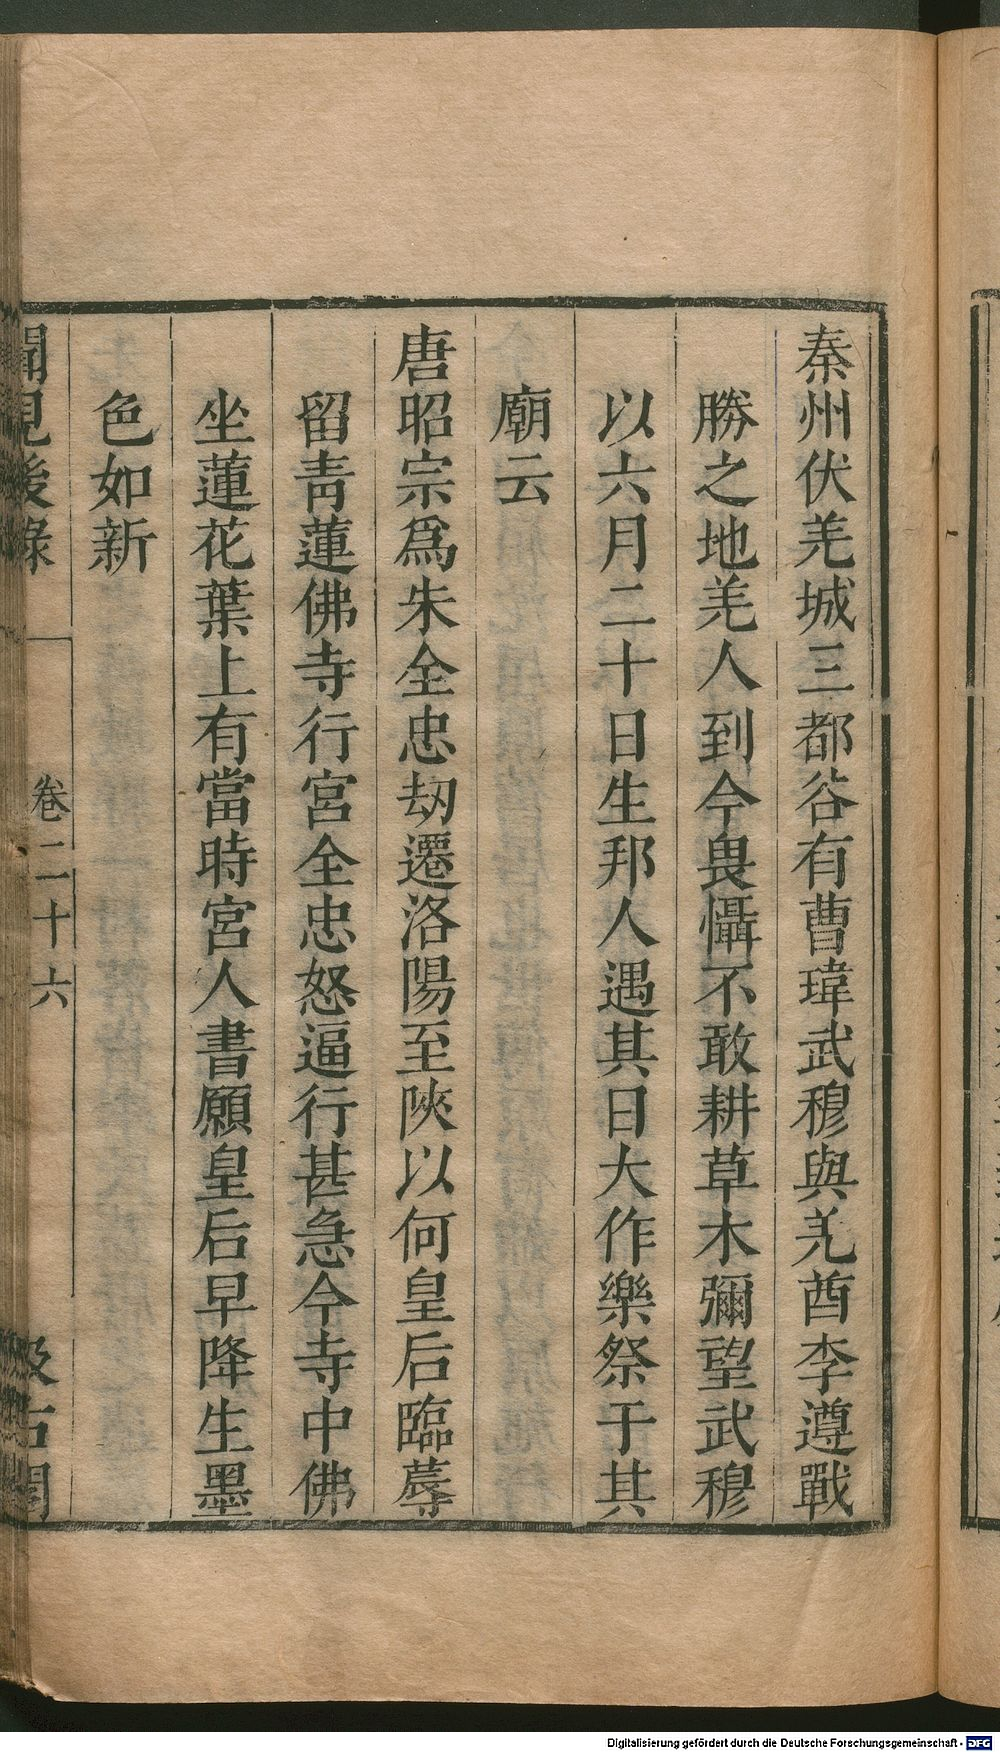 秦州伏羌城三都谷有曹瑋武穆與羌酋李遵戰
勝之地羌人到今畏懾不敢耕草木彌望武穆
以六月二十日生邦人遇其日大作樂祭于其
廟云
唐昭宗爲朱全忠劫遷洛陽至陝以何皇后臨蓐
留青蓮佛寺行宮全忠怒逼行甚急今寺中佛
坐蓮花葉上有當時宮人書願皇后早降生墨
色如新
聞見後錄
卷二十六
汲古閣
Digitalisierung gefördert durch die Deutsche Forschungsgemeinschaft - DFG